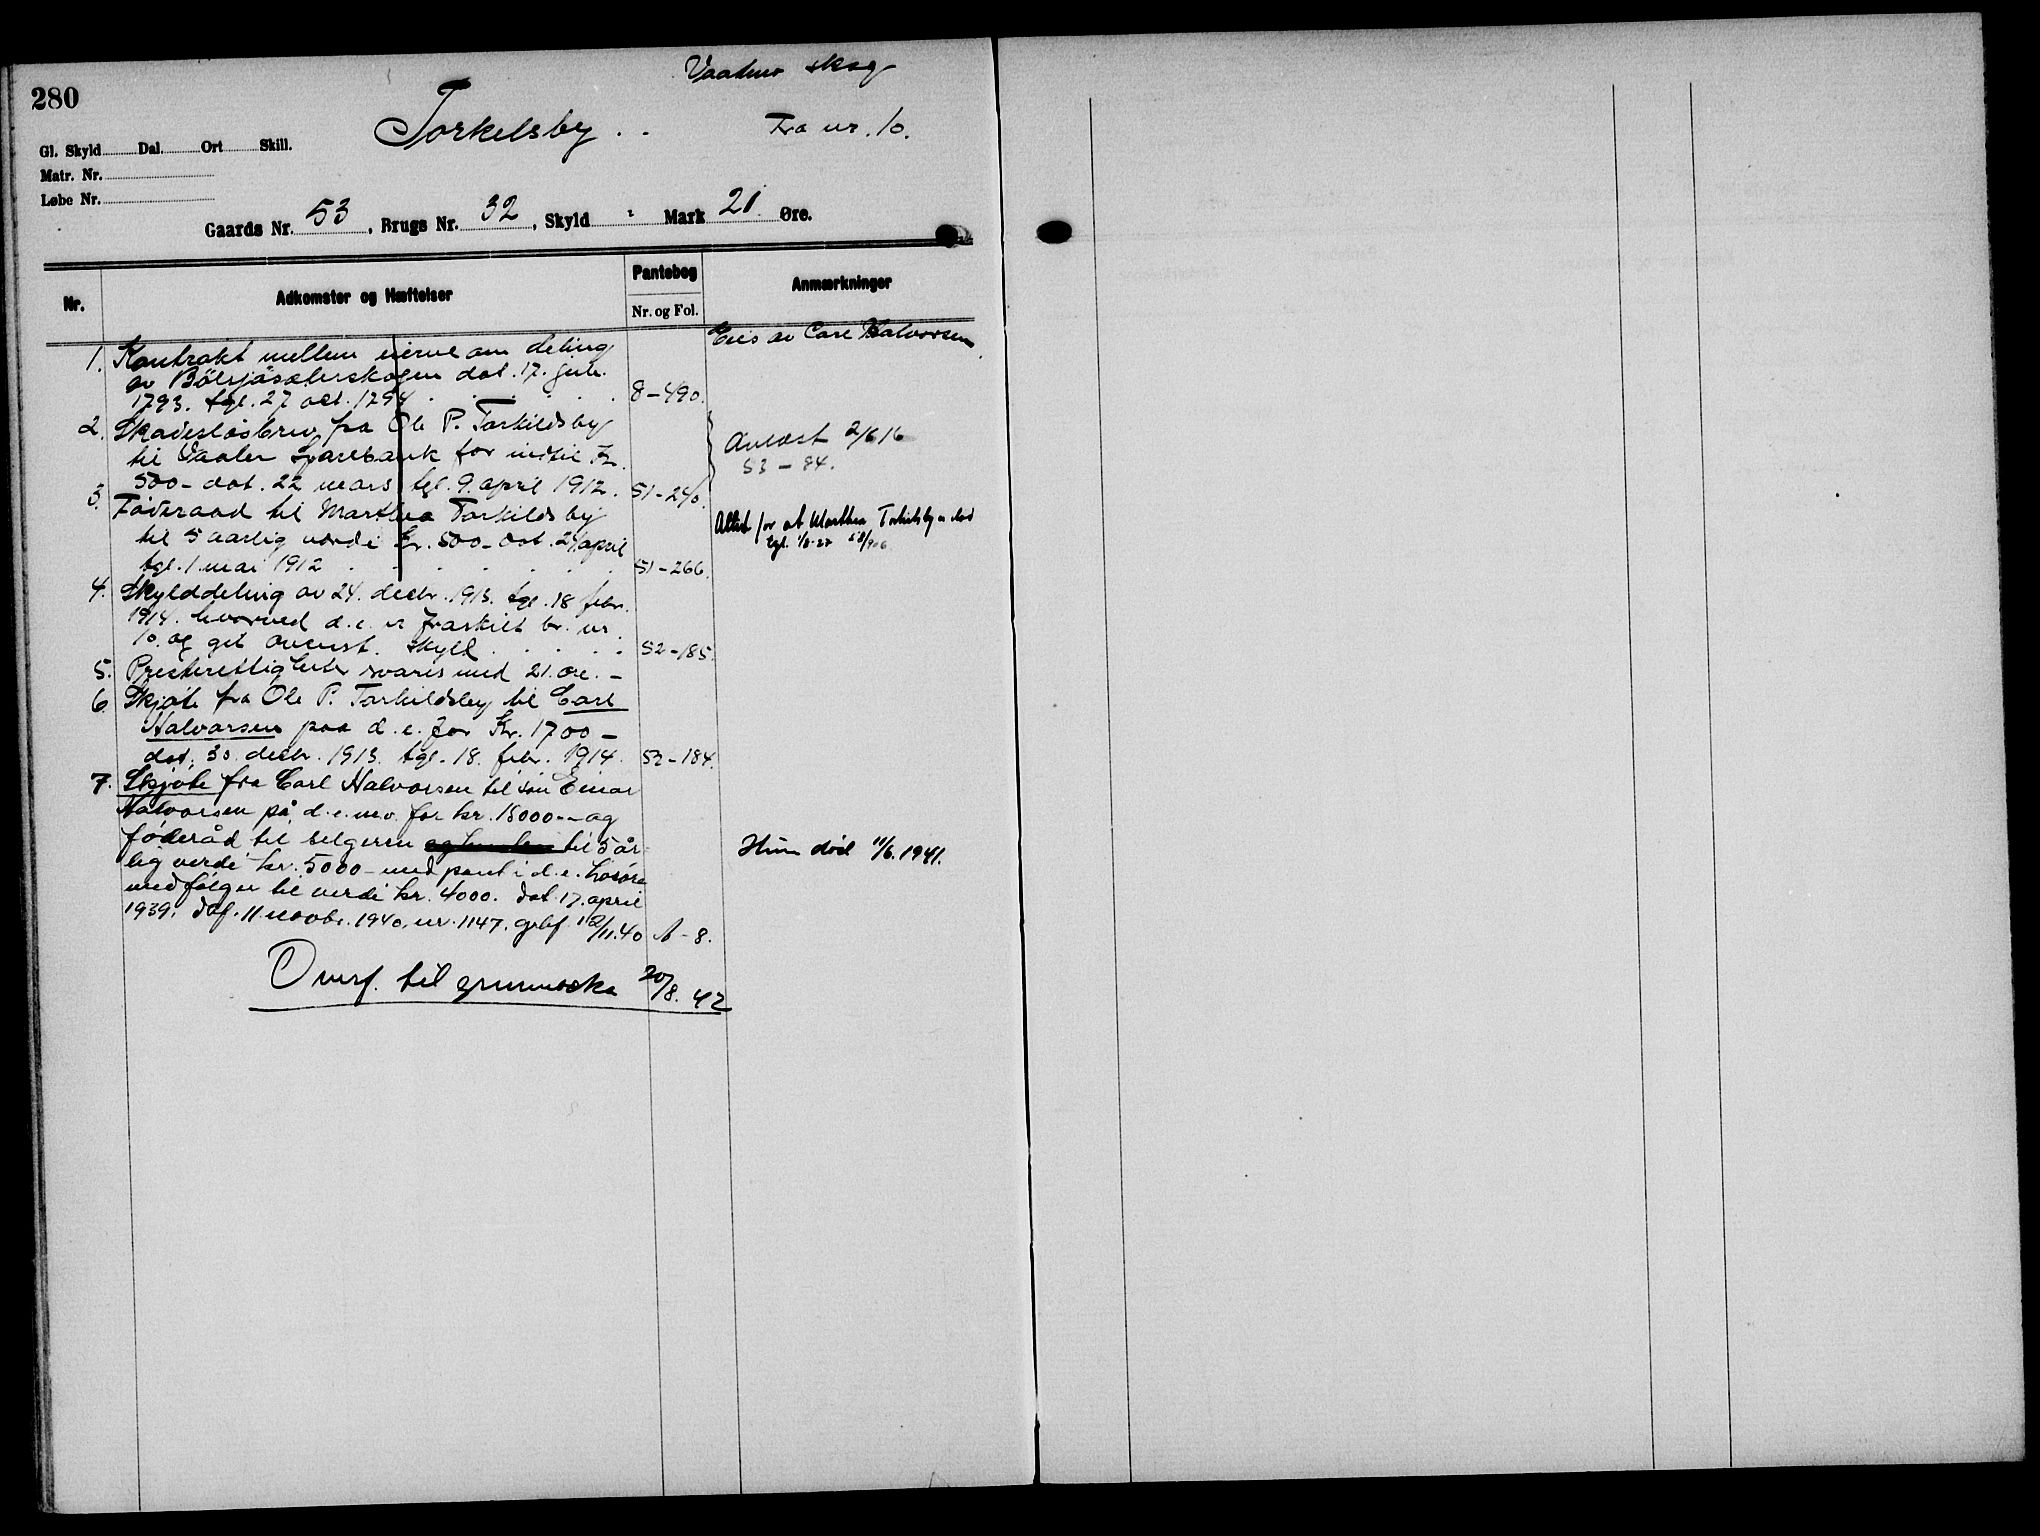 280
Vaalers skog
Torkelsby . .
Fra nr. 10.
Gl. Skyld Dal. Ort Skill.
Matr. Nr.
Løbe Nr.
Gaards Nr. 53, Brugs Nr. 32, Skyld " Mark 21 Øre.
Nr. Adkomster og Hæftelser Pantebog Nr. og Fol. Anmærkninger
Eies av Carl Halvorsen
1. Kontrakt mellem eierne om deling
av Bölsjösæterskogen dat. 17. juli.
1793. tgl. 27 oct. 1794 . . . . . 8-490.
2. Skadesløsbrev fra Ole P. Torkildsby
til Vaaler Sparebank for indtil Kr.
500- dat. 22 mars tgl. 9. april 1912. 51-240.
Avlæst 2/6 16
53-84.
3. Føderaad til Marthea Torkildsby
til 5 aarlig værdi Kr. 500- dat. 24 april
tgl. 1. mai 1912 . . . . . 51-266.
Attest for at Marthea Torkelsby er død
tgl. 1/8-27 58/906
4. Skylddeling av 24. decbr. 1913. tgl. 18 febr.
1914. hvorved d.e. er fraskilt br. nr.
10. og git ovenst. skyld . . . . 52-185.
5. Presterettigheter svares med 21. øre. -
6. Skjøte fra Ole P. Torkildsby til Carl
Halvorsen paa d.e. for Kr. 1700-
dat. 30. decbr. 1913. tgl. 18. febr. 1914. 52-184.
7. Skjøte fra Carl Halvorsen til søn Einar
Halvorsen på d.e. m.v. for kr. 15000.- og
føderåd til selgeren til 5 år-
lig verdi kr. 5000- med pant i d.e. Løsøre
medfølger til verdi kr. 4000. dat. 17. april
1939. Daf. 11 novbr. 1940. nr. 1147. gebf. 12/11.40 A-8.
Hun död 11/6. 1941.
Overf. til grunnboka 20/8. 42